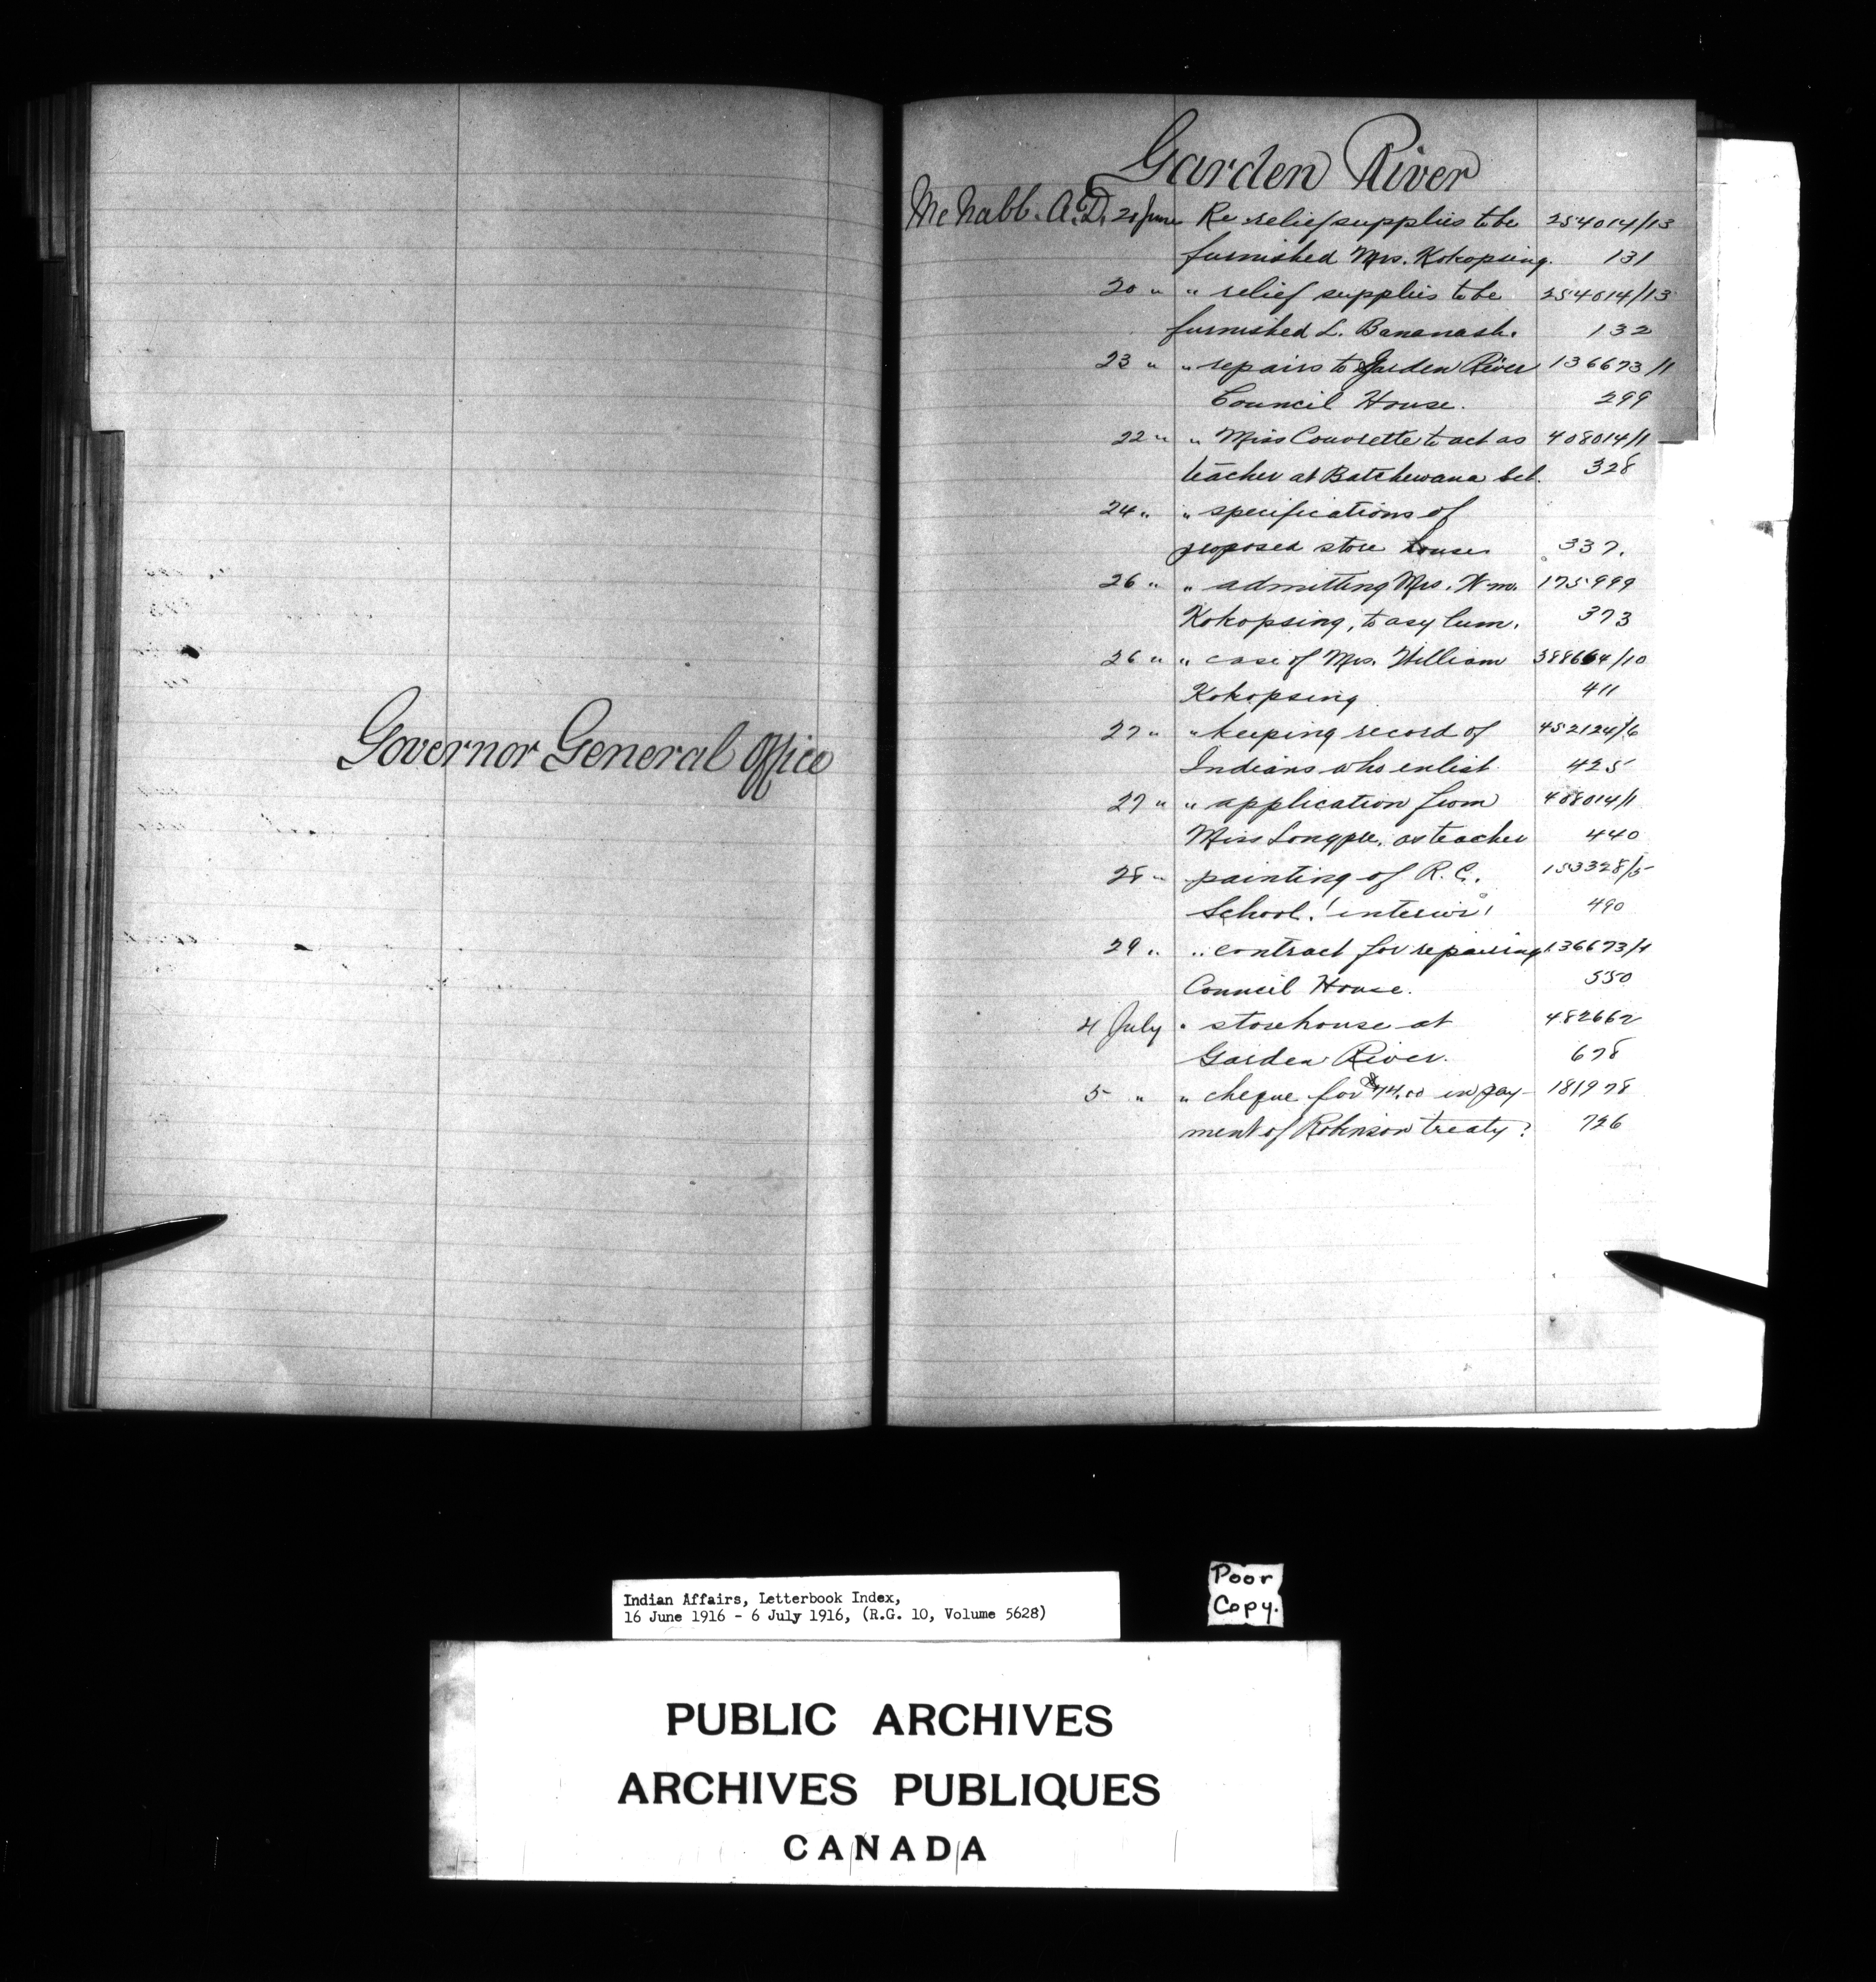 Governor General Office
Garden River
McNabb. A.D. 20 June Re relief supplies to be 254014/13
furnished Mrs. Kokopsing. 131
20 " " relief supplies to be 254014/13
furnished L. Bananash. 132
23 " " repairs to Garden River 136673/1
Council House. 299
22 " " Miss Couvrette to act as 408014/1
teacher at Batchewana sch. 328
24 " " specifications of
proposed store house 337.
26 " " admitting Mrs. Wm. 175999
Kokopsing, to asylum. 373
26 " " case of Mrs. William 388664/10
Kokopsing 411
27 " " keeping record of 452124/6
Indians who enlist. 425
27 " " application from 408014/1
Miss Longpre, as teacher 440
28 " painting of R.C. 153328/5
School. "interior" 490
29 " " contract for repairing 136673/1
Council House. 550
4 July " storehouse at 482662
Garden River. 678
5 " " cheque for $74.00 in pay- 181978
ment of Robinson treaty? 726
Indian Affairs, Letterbook Index,
16 June 1916 - 6 July 1916, (R.G. 10, Volume 5628)
Poor
Copy.
PUBLIC ARCHIVES
ARCHIVES PUBLIQUES
CANADA